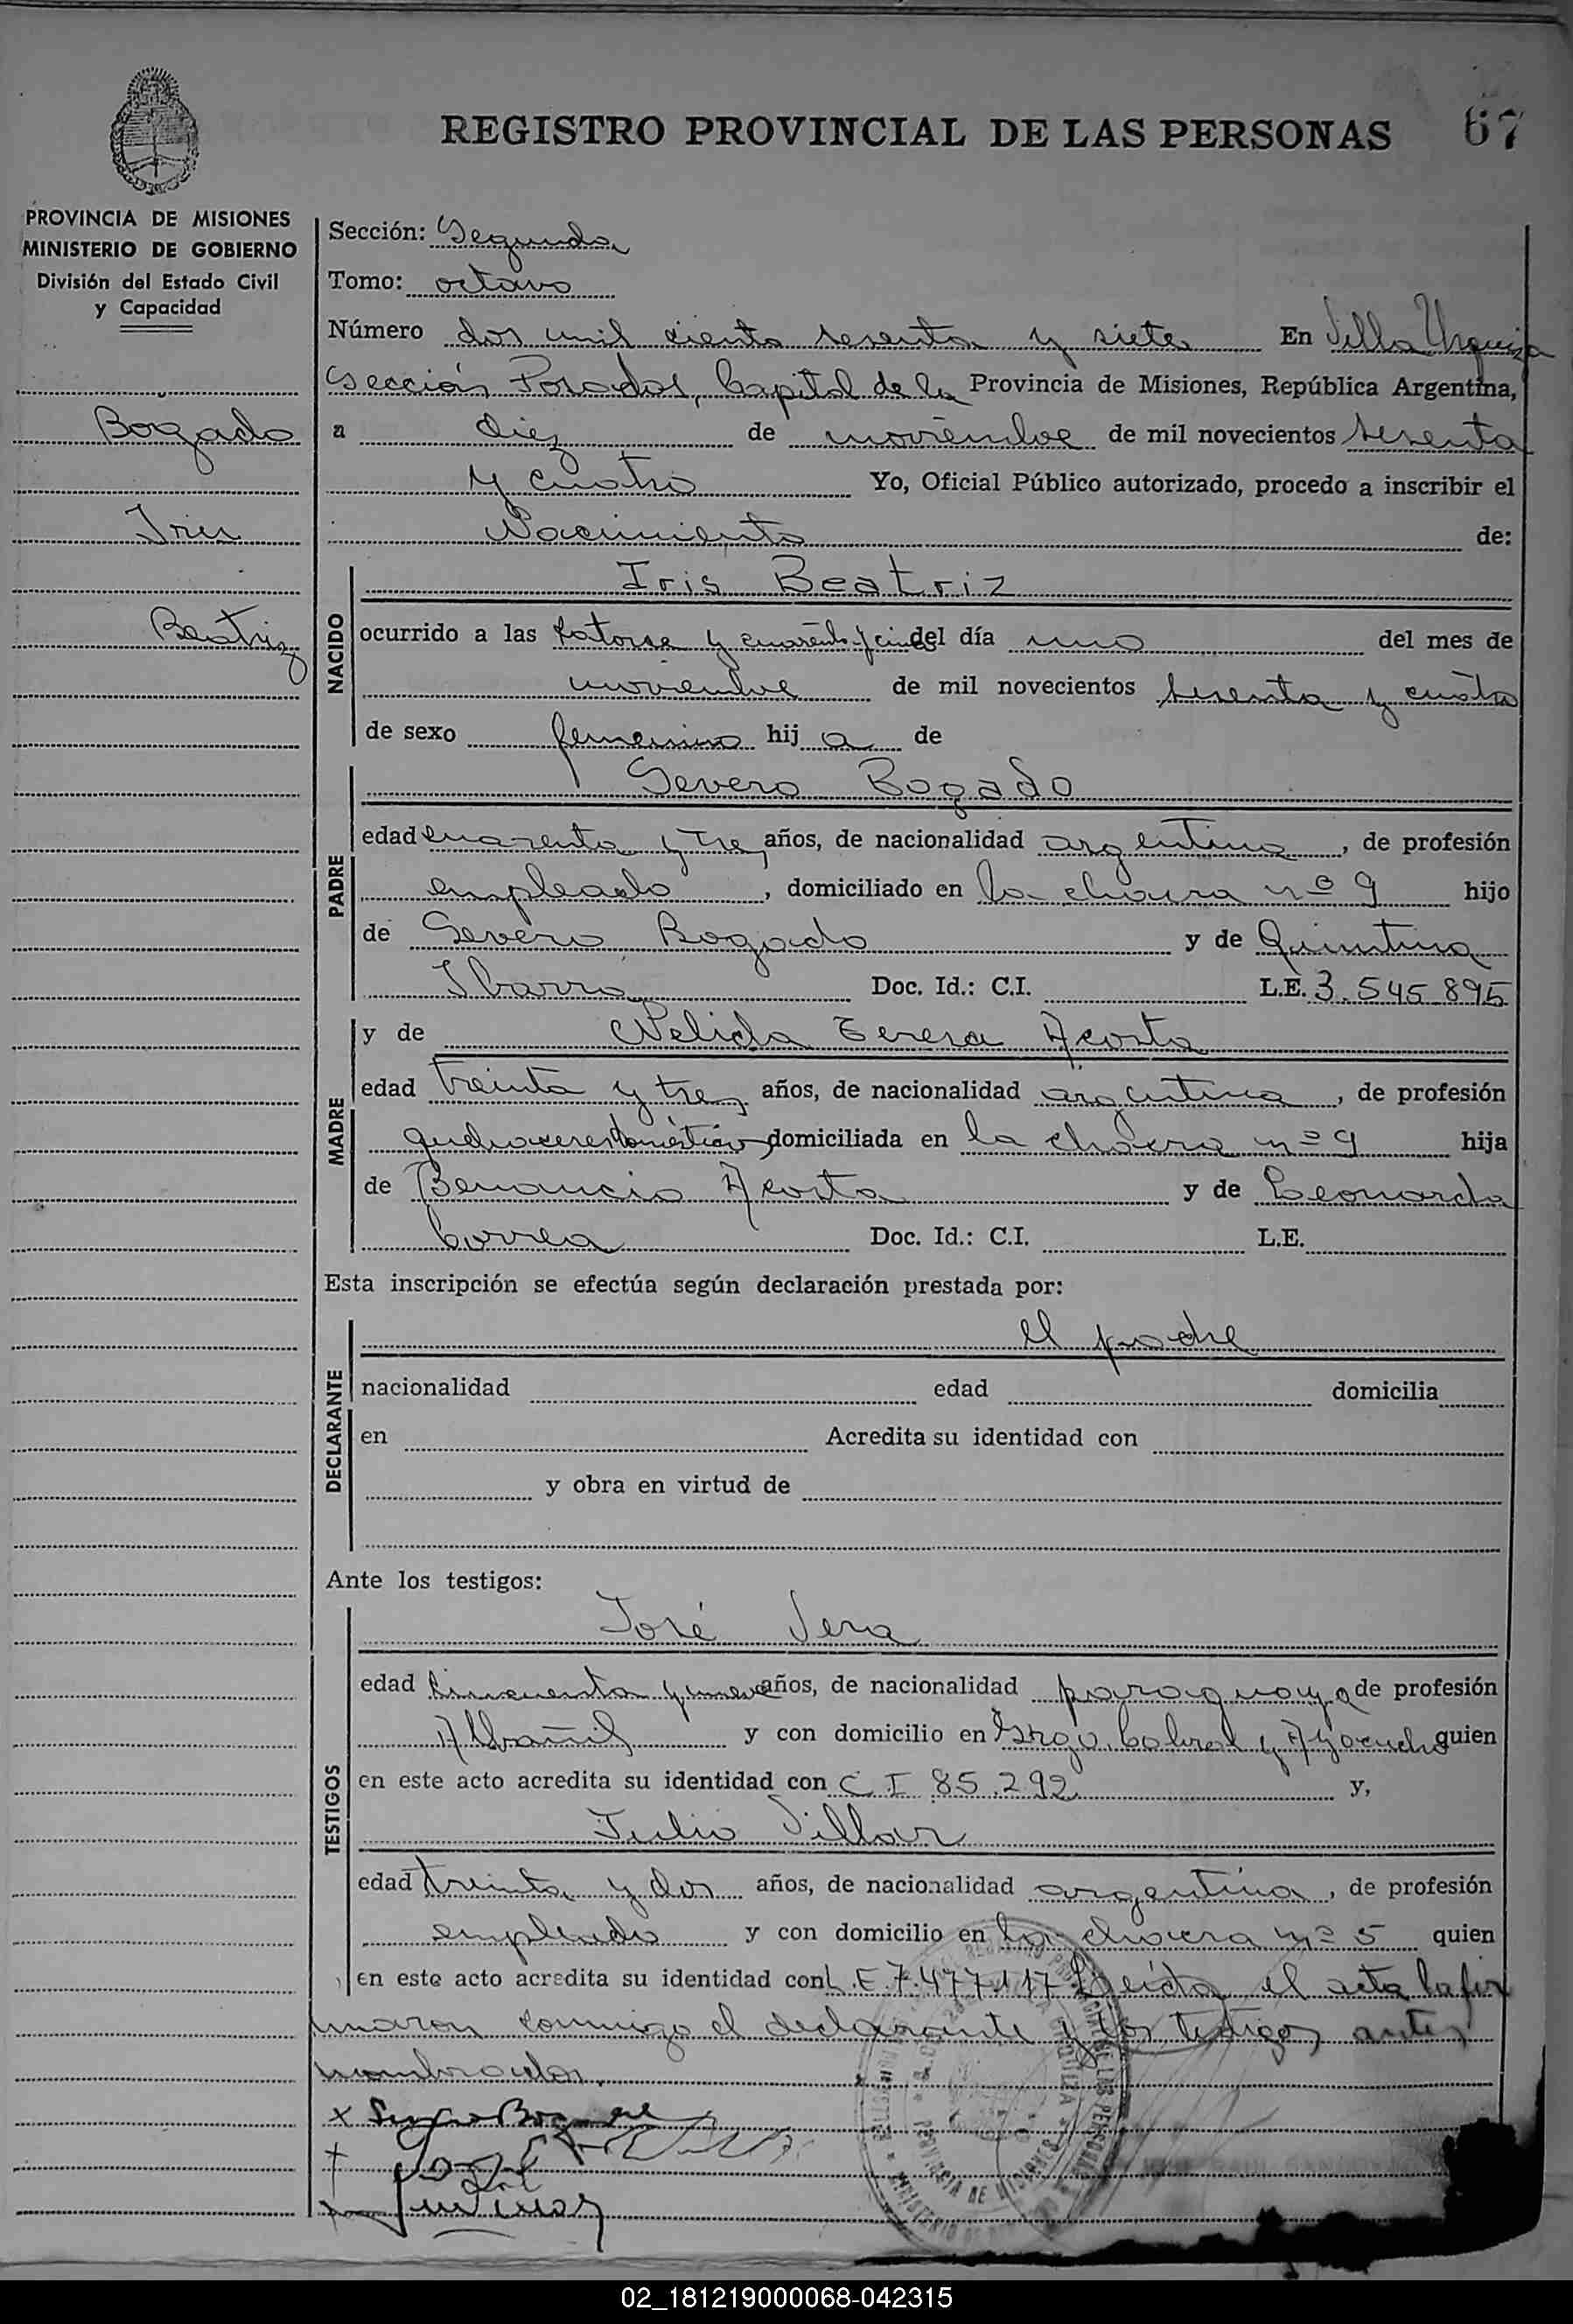 REGISTRO PROVINCIAL DE LAS PERSONAS 67
PROVINCIA DE MISIONES
MINISTERIO DE GOBIERNO
División del Estado Civil
y Capacidad
Bogado
Iris
Beatriz
Sección: Segunda
Tomo: octavo
Número dos mil ciento sesenta y siete En Villa Urquiza
Sección Posadas, Capital de la Provincia de Misiones, República Argentina,
a diez de noviembre de mil novecientos sesenta
y cuatro Yo, Oficial Público autorizado, procedo a inscribir el
Nacimiento de:
NACIDO
Iris Beatriz
ocurrido a las catorse y cuarenta y cinco del día uno del mes de
noviembre de mil novecientos sesenta y cuatro
de sexo femenino hij a de
PADRE
Severo Bogado
edad cuarenta y tres años, de nacionalidad argentina, de profesión
empleado, domiciliado en la chacra nº 9 hijo
de Severo Bogado y de Quintina
Ibarra Doc. Id.: C.I. L.E. 3.545.895
MADRE
y de Nelida Teresa Acosta
edad treinta y tres años, de nacionalidad argentina, de profesión
domiciliada en la chacra nº 9 hija
de Benancio Acosta y de Leonarda
Correa Doc. Id.: C.I. L.E.
Esta inscripción se efectúa según declaración prestada por:
DECLARANTE
el padre
nacionalidad edad domicilia
en Acredita su identidad con
y obra en virtud de
Ante los testigos:
TESTIGOS
José Vera
edad cincuenta y nueve años, de nacionalidad paraguaya de profesión
Albañil y con domicilio en Srgo. Cabral y Ayacucho quien
en este acto acredita su identidad con C I 85.292 y,
Julio Villar
edad treinta y dos años, de nacionalidad argentina, de profesión
empleado y con domicilio en la chacra nº 5 quien
en este acto acredita su identidad con L.E 7.477.117 Leída el acta la fir
maron conmigo el declarante y los testigos antes
nombrados.
x Severo Bogado
José
02_181219000068-042315